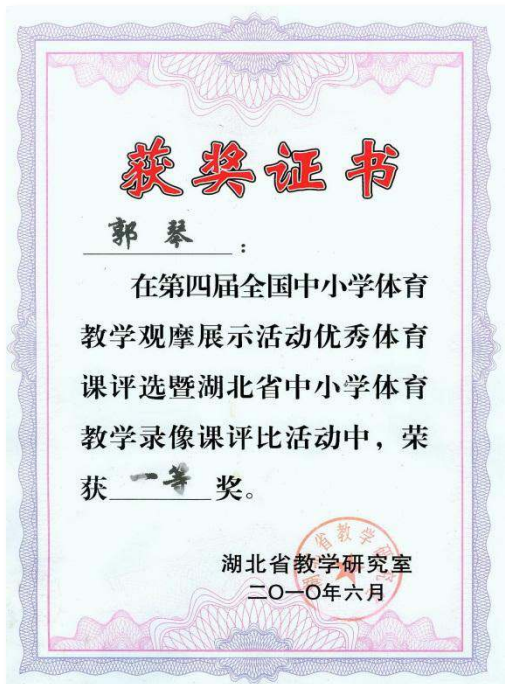 获奖证书
郭琴：
在第四届全国中小学体育
教学观摩展示活动优秀体育
课评选暨湖北省中小学体育
教学录像课评比活动中，荣
获一等奖。
湖北省教学研究室
二〇一〇年六月
湖北省教学研究室